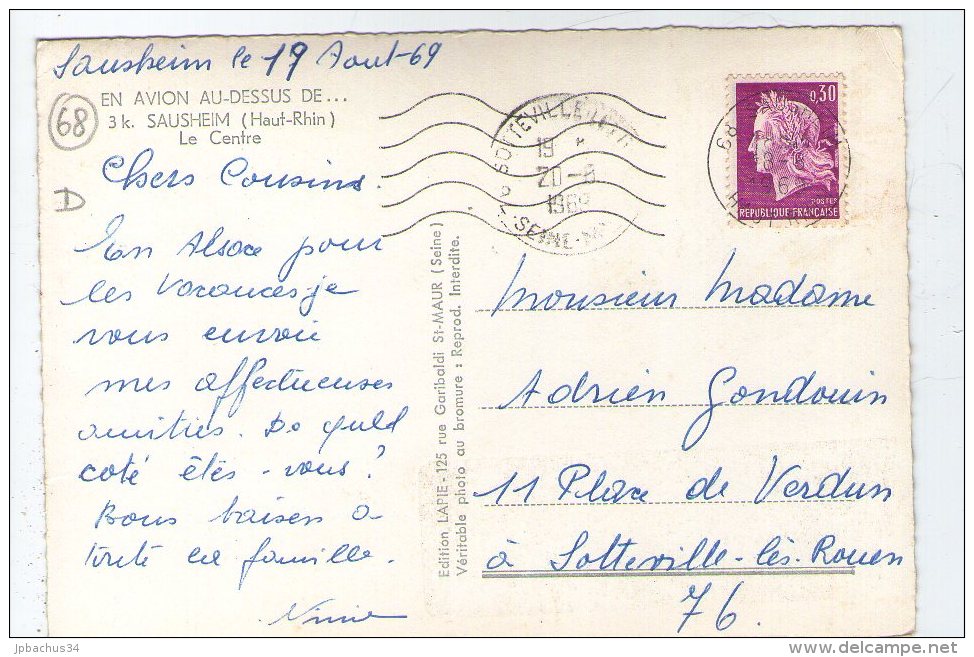 Sausheim le 17 Aout-69
68
EN AVION AU-DESSUS DE...
3 k. SAUSHEIM (Haut-Rhin)
Le Centre
D
Chers Cousins.
En Alsace pour
les Vacances je
vous envoie
mes affectueuses
amitiés. De quel
coté êtes-vous?
Bons baisers a
toute la famille.
Edition LAPIE - 125 rue Garibaldi St-MAUR (Seine)
Véritable photo au bromure : Reprod. Interdite.
19
20-8
SEINE-M
0,30
POSTES
REPUBLIQUE FRANÇAISE
68
Monsieur Madame
Adrien Gondouin
11 Place de Verdun
à Sotteville-lès-Rouen
76.
jpbachus34
delcampe.net